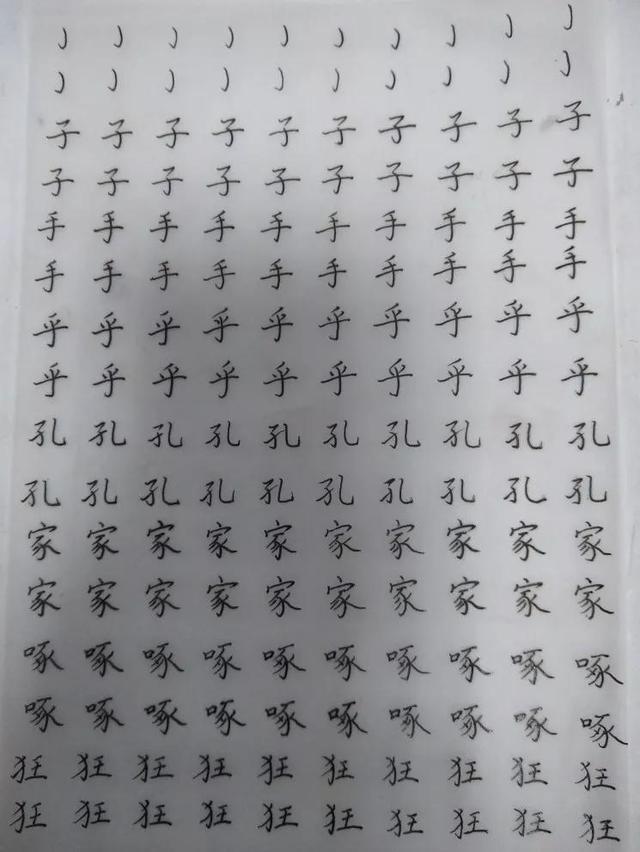 亅 亅 亅 亅 亅 亅 亅 亅 亅 亅
亅 亅 亅 亅 亅 亅 亅 亅 亅 亅
子 子 子 子 子 子 子 子 子 子
子 子 子 子 子 子 子 子 子 子
手 手 手 手 手 手 手 手 手 手
手 手 手 手 手 手 手 手 手 手
乎 乎 乎 乎 乎 乎 乎 乎 乎 乎
乎 乎 乎 乎 乎 乎 乎 乎 乎 乎
孔 孔 孔 孔 孔 孔 孔 孔 孔 孔
孔 孔 孔 孔 孔 孔 孔 孔 孔 孔
家 家 家 家 家 家 家 家 家 家
家 家 家 家 家 家 家 家 家 家
啄 啄 啄 啄 啄 啄 啄 啄 啄 啄
啄 啄 啄 啄 啄 啄 啄 啄 啄 啄
狂 狂 狂 狂 狂 狂 狂 狂 狂 狂
狂 狂 狂 狂 狂 狂 狂 狂 狂 狂